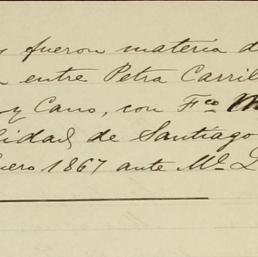 y fueron materia d
entre Petra Carril
y Cano, con Fco M
cidad de Santiago
ero 1867 ante Ml. D